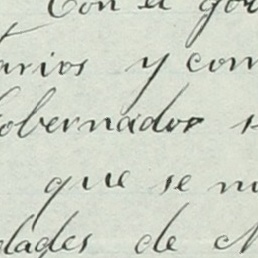 Con el go
arios y com
obernador s
que se m
dades de M